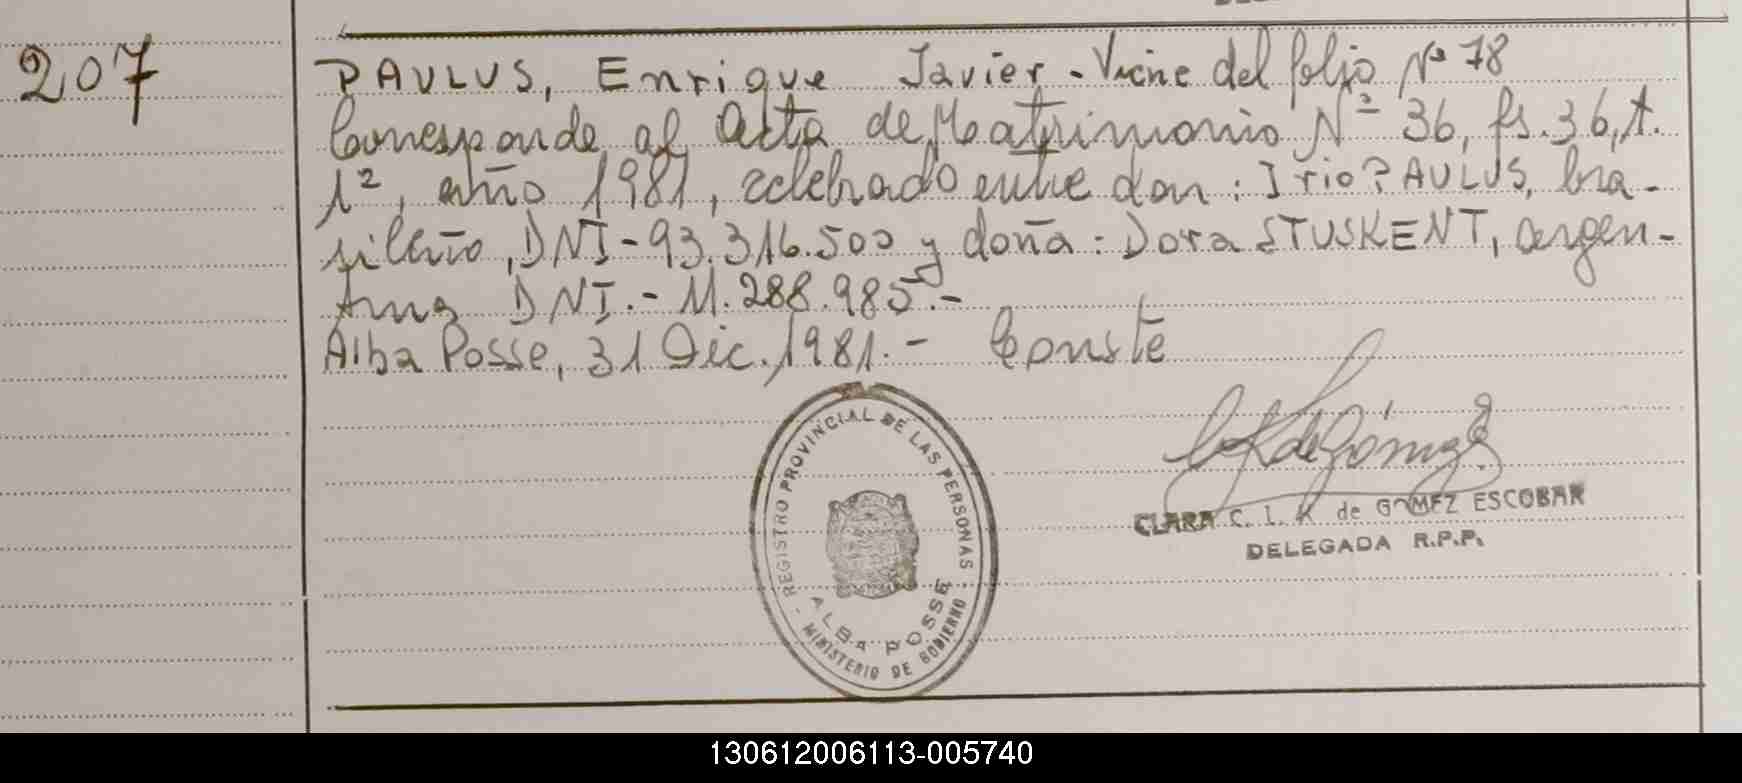 207
PAULUS, Enrique Javier - Viene del folio Nº 78
Corresponde al Acta de Matrimonio Nº 36, fs. 36, t.
1º, año 1981, celebrado entre don: Irio PAULUS, bra-
sileño, DNI - 93.316.500 y doña: Dora STUSKENT, argen-
tina DNI. - 11.288.985.-
Alba Posse, 31 Dic. 1981. - Conste
REGISTRO PROVINCIAL DE LAS PERSONAS
ALBA POSSE
MINISTERIO DE GOBIERNO
CLARA C. I. K de GOMEZ ESCOBAR
DELEGADA R.P.P.
130612006113-005740